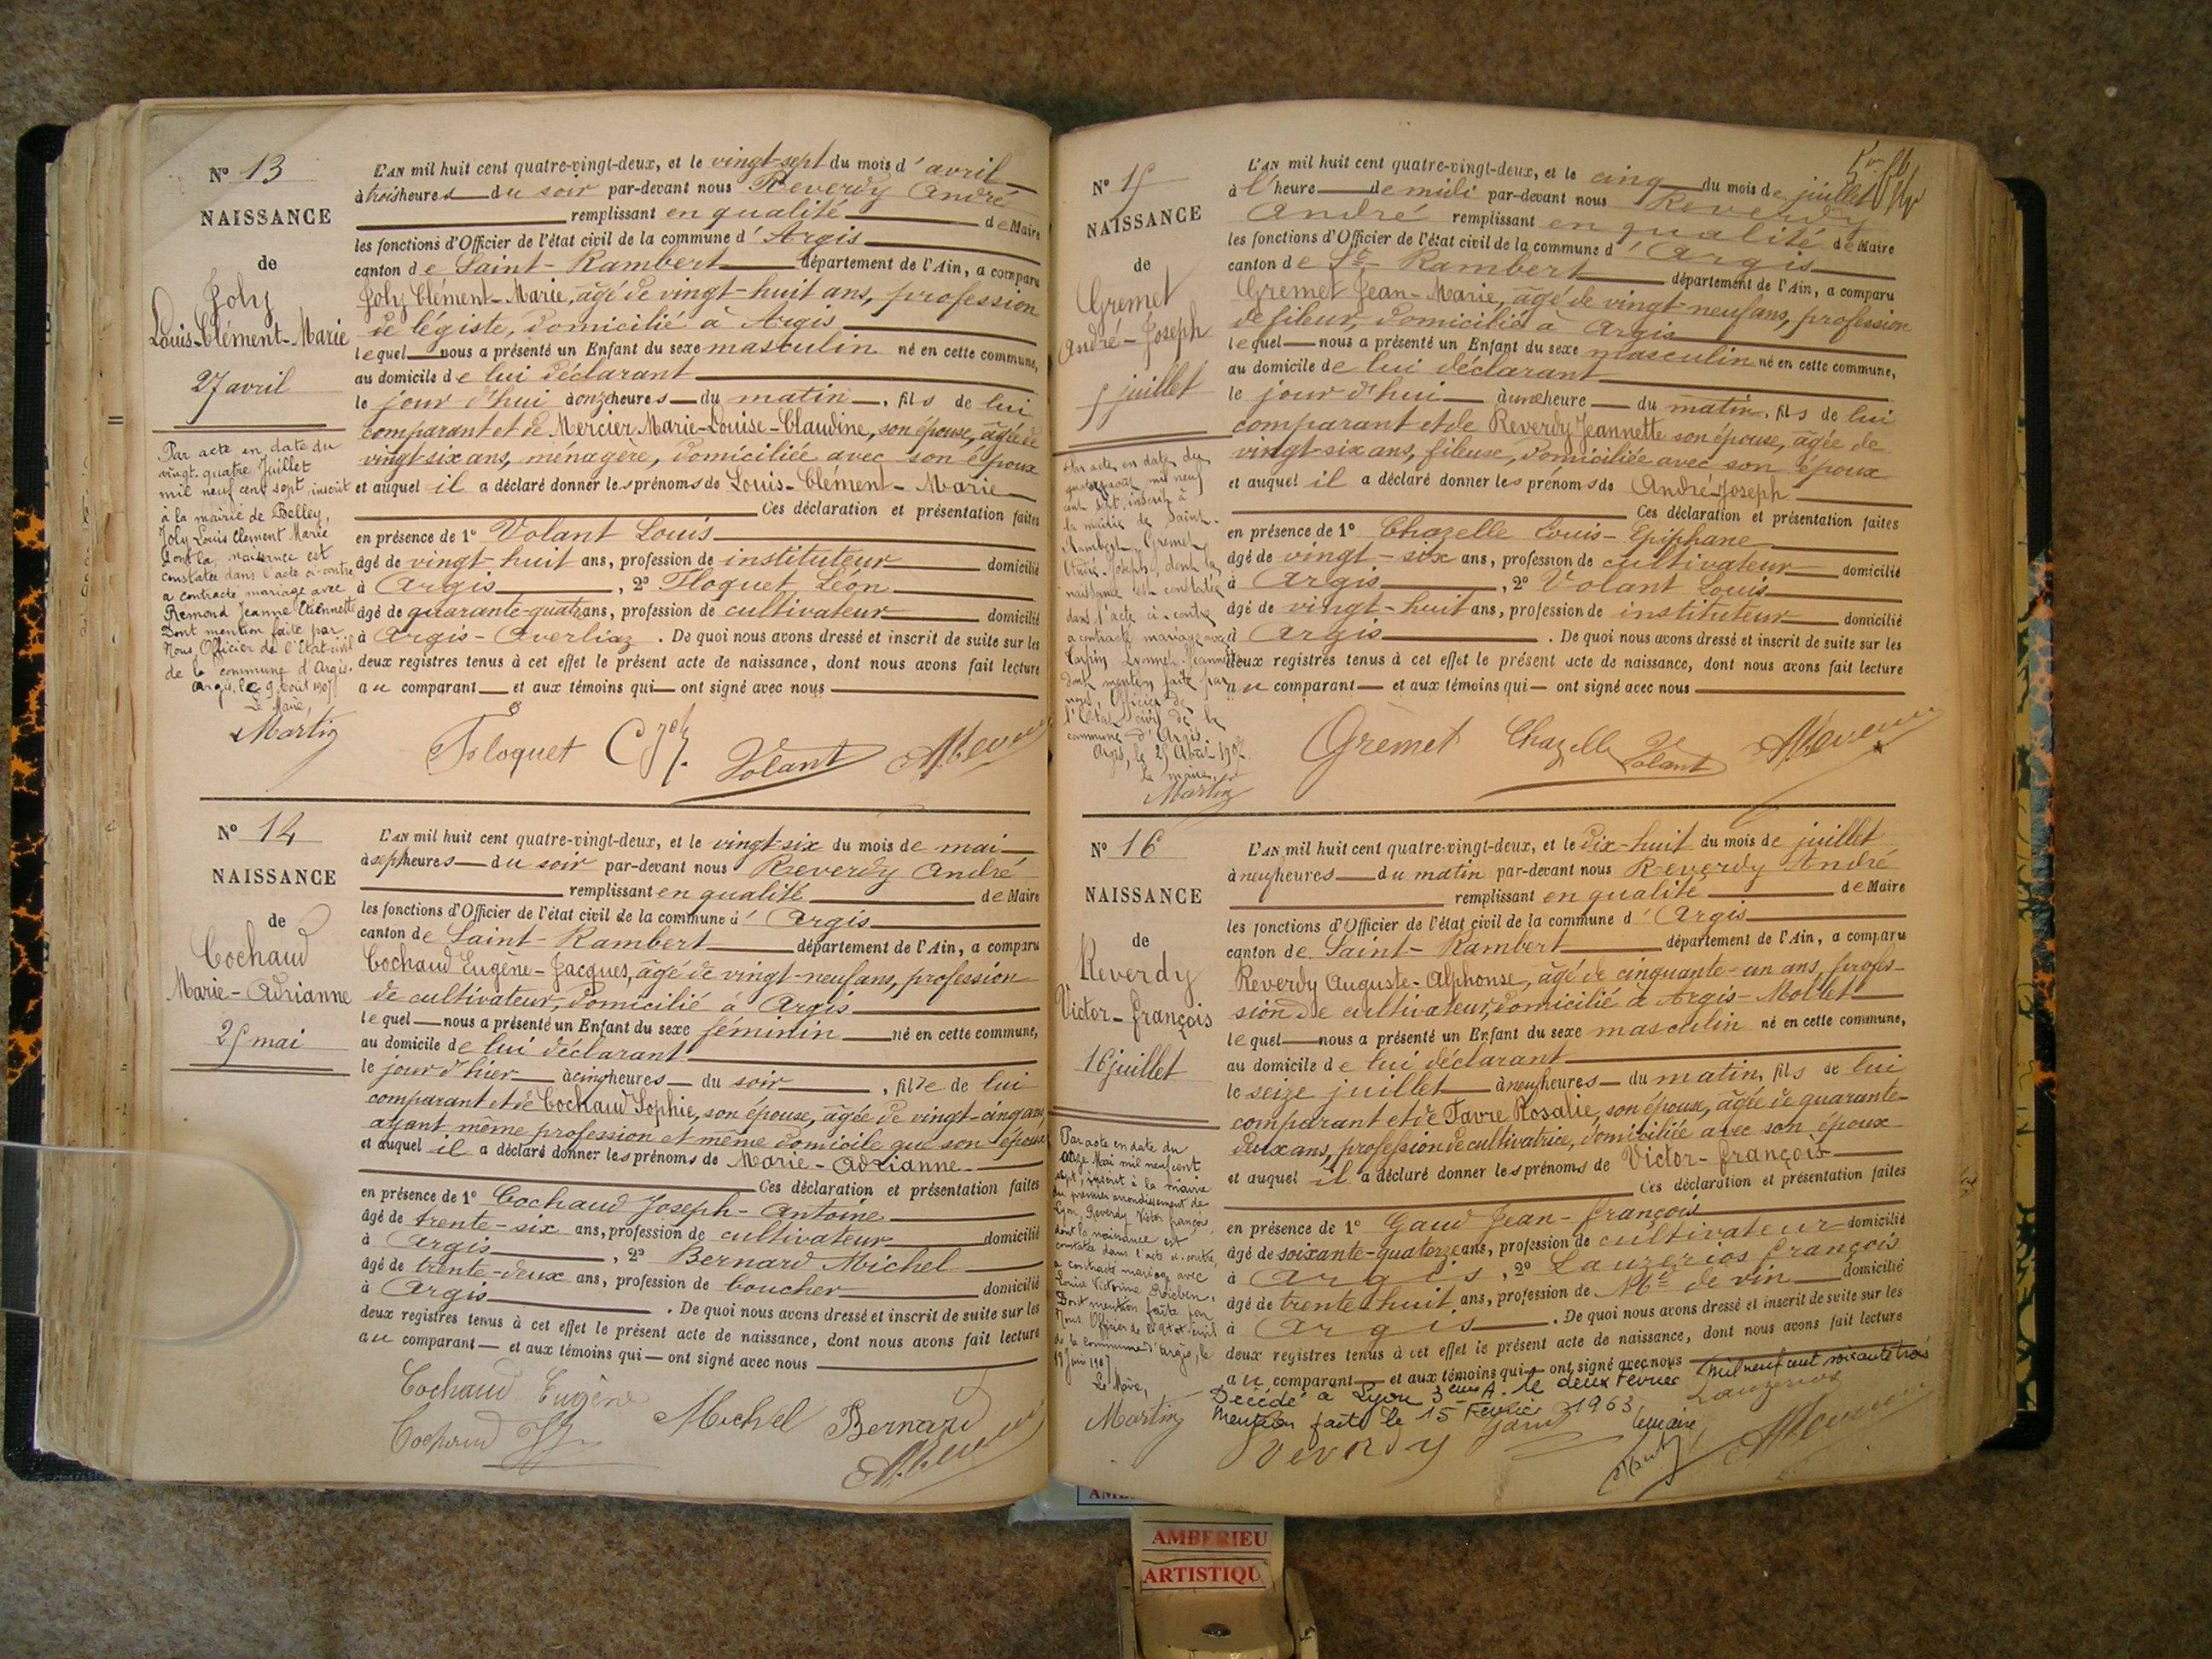 N° 13
NAISSANCE
de
Joly
Louis-Clément-Marie
27 avril
Par acte en date du
vingt-quatre Juillet
mil neuf cent sept, inscrit
à la mairie de Belley,
Joly Louis Clement Marie
dont la naissance est
constatée dans l'acte ci-contre
a contracté mariage avec
Remond Jeanne Etiennette
Dont mention faite par
Nous, Officier de l'Etat-civil
de la commune d'Argis.
Argis, le 9 Août 1907
Le Maire,
Martin
L'AN mil huit cent quatre-vingt-deux, et le vingt-sept du mois d'avril
à trois heures du soir par-devant nous Reverdy André
remplissant en qualité de Maire
les fonctions d'Officier de l'état civil de la commune d'Argis
canton de Saint-Rambert département de l'Ain, a comparu
Joly Clément-Marie, âgé de vingt-huit ans, profession
de légiste, domicilié à Argis
lequel nous a présenté un Enfant du sexe masculin né en cette commune,
au domicile de lui déclarant
le jour d'hui à onze heures du matin, fils de lui
comparant et de Mercier Marie-Louise-Claudine, son épouse, âgée de
vingt-six ans, ménagère, domiciliée avec son époux
et auquel il a déclaré donner les prénoms de Louis-Clément-Marie
Ces déclaration et présentation faites
en présence de 1° Volant Louis
âgé de vingt-huit ans, profession de instituteur domicilié
à Argis, 2° Floquet Léon
âgé de quarante-quatre ans, profession de cultivateur domicilié
à Argis-Averliaz. De quoi nous avons dressé et inscrit de suite sur les
deux registres tenus à cet effet le présent acte de naissance, dont nous avons fait lecture
au comparant et aux témoins qui ont signé avec nous
Floquet C Joly Volant A. Reverdy
N° 14
NAISSANCE
de
Cochaud
Marie-Adrianne
25 mai
L'AN mil huit cent quatre-vingt-deux, et le vingt-six du mois de mai
à sept heures du soir par-devant nous Reverdy André
remplissant en qualité de Maire
les fonctions d'Officier de l'état civil de la commune d'Argis
canton de Saint-Rambert département de l'Ain, a comparu
Cochaud Eugène-Jacques, âgé de vingt-neuf ans, profession
de cultivateur, domicilié à Argis
lequel nous a présenté un Enfant du sexe féminin né en cette commune,
au domicile de lui déclarant
le jour d'hier à cinq heures du soir, fille de lui
comparant et de Cochaud Sophie, son épouse, âgée de vingt-cinq ans,
ayant même profession et même domicile que son époux
et auquel il a déclaré donner les prénoms de Marie-Adrianne
Ces déclaration et présentation faites
en présence de 1° Cochaud Joseph-Antoine
âgé de trente-six ans, profession de cultivateur domicilié
à Argis, 2° Bernard Michel
âgé de trente-deux ans, profession de boucher domicilié
à Argis. De quoi nous avons dressé et inscrit de suite sur les
deux registres tenus à cet effet le présent acte de naissance, dont nous avons fait lecture
au comparant et aux témoins qui ont signé avec nous
Cochaud Eugène
Cochaud Michel Bernard
A. Reverdy
N° 15
NAISSANCE
de
Gremet
André-Joseph
5 juillet
Par acte en date du
mil neuf
cent sept, inscrit à
la mairie de Saint-
Rambert, Gremet
André-Joseph, dont la
naissance est constatée
dans l'acte ci-contre
a contracté mariage avec
dont mention faite par
nous, Officier de
l'Etat civil de la
commune d'Argis
Argis, le 25 Août 1907
Le maire,
Martin
L'AN mil huit cent quatre-vingt-deux, et le cinq du mois de juillet
à l'heure de midi par-devant nous Reverdy
André remplissant en qualité de Maire
les fonctions d'Officier de l'état civil de la commune d'Argis
canton de St-Rambert département de l'Ain, a comparu
Gremet Jean-Marie, âgé de vingt-neuf ans, profession
de fileur, domicilié à Argis
lequel nous a présenté un Enfant du sexe masculin né en cette commune,
au domicile de lui déclarant
le jour d'hui à une heure du matin, fils de lui
comparant et de Reverdy Jeannette son épouse, âgée de
vingt-six ans, fileuse, domiciliée avec son époux
et auquel il a déclaré donner les prénoms de André-Joseph
Ces déclaration et présentation faites
en présence de 1° Chazelle Louis-Epiphane
âgé de vingt-six ans, profession de cultivateur domicilié
à Argis, 2° Volant Louis
âgé de vingt-huit ans, profession de instituteur domicilié
à Argis. De quoi nous avons dressé et inscrit de suite sur les
deux registres tenus à cet effet le présent acte de naissance, dont nous avons fait lecture
au comparant et aux témoins qui ont signé avec nous
Gremet Chazelle Volant A. Reverdy
N° 16
NAISSANCE
de
Reverdy
Victor-François
16 juillet
Par acte en date du
onze Mai mil neuf cent
sept, inscrit à la mairie
du premier arrondissement de
Lyon, Reverdy Victor François
dont la naissance est
constatée dans l'acte ci-contre,
a contracté mariage avec
Louise Victorine
Dont mention faite par
Nous Officier de l'Etat-civil
de la commune d'Argis, le
19 Juin 1907
Le Maire,
Martin
L'AN mil huit cent quatre-vingt-deux, et le dix-huit du mois de juillet
à neuf heures du matin par-devant nous Reverdy André
remplissant en qualité de Maire
les fonctions d'Officier de l'état civil de la commune d'Argis
canton de Saint-Rambert département de l'Ain, a comparu
Reverdy Auguste-Alphonse, âgé de cinquante-un ans, profes-
sion de cultivateur, domicilié à Argis-Mollet
lequel nous a présenté un Enfant du sexe masculin né en cette commune,
au domicile de lui déclarant
le seize juillet à neuf heures du matin, fils de lui
comparant et de Favre Rosalie, son épouse, âgée de quarante-
deux ans, profession de cultivatrice, domiciliée avec son époux
et auquel il a déclaré donner les prénoms de Victor-François
Ces déclaration et présentation faites
en présence de 1° Gaud Jean-François
âgé de soixante-quatorze ans, profession de cultivateur domicilié
à Argis, 2° Lauzerios François
âgé de trente-huit ans, profession de Md de vin domicilié
à Argis. De quoi nous avons dressé et inscrit de suite sur les
deux registres tenus à cet effet le présent acte de naissance, dont nous avons fait lecture
au comparant et aux témoins qui ont signé avec nous
Décédé à Lyon 3ème A. le deux Février mil neuf cent soixante trois
Mention faite le 15 Février 1963 Le maire,
Lauzerios
Reverdy Gaud A. Reverdy
AMBERIEU
ARTISTIQU